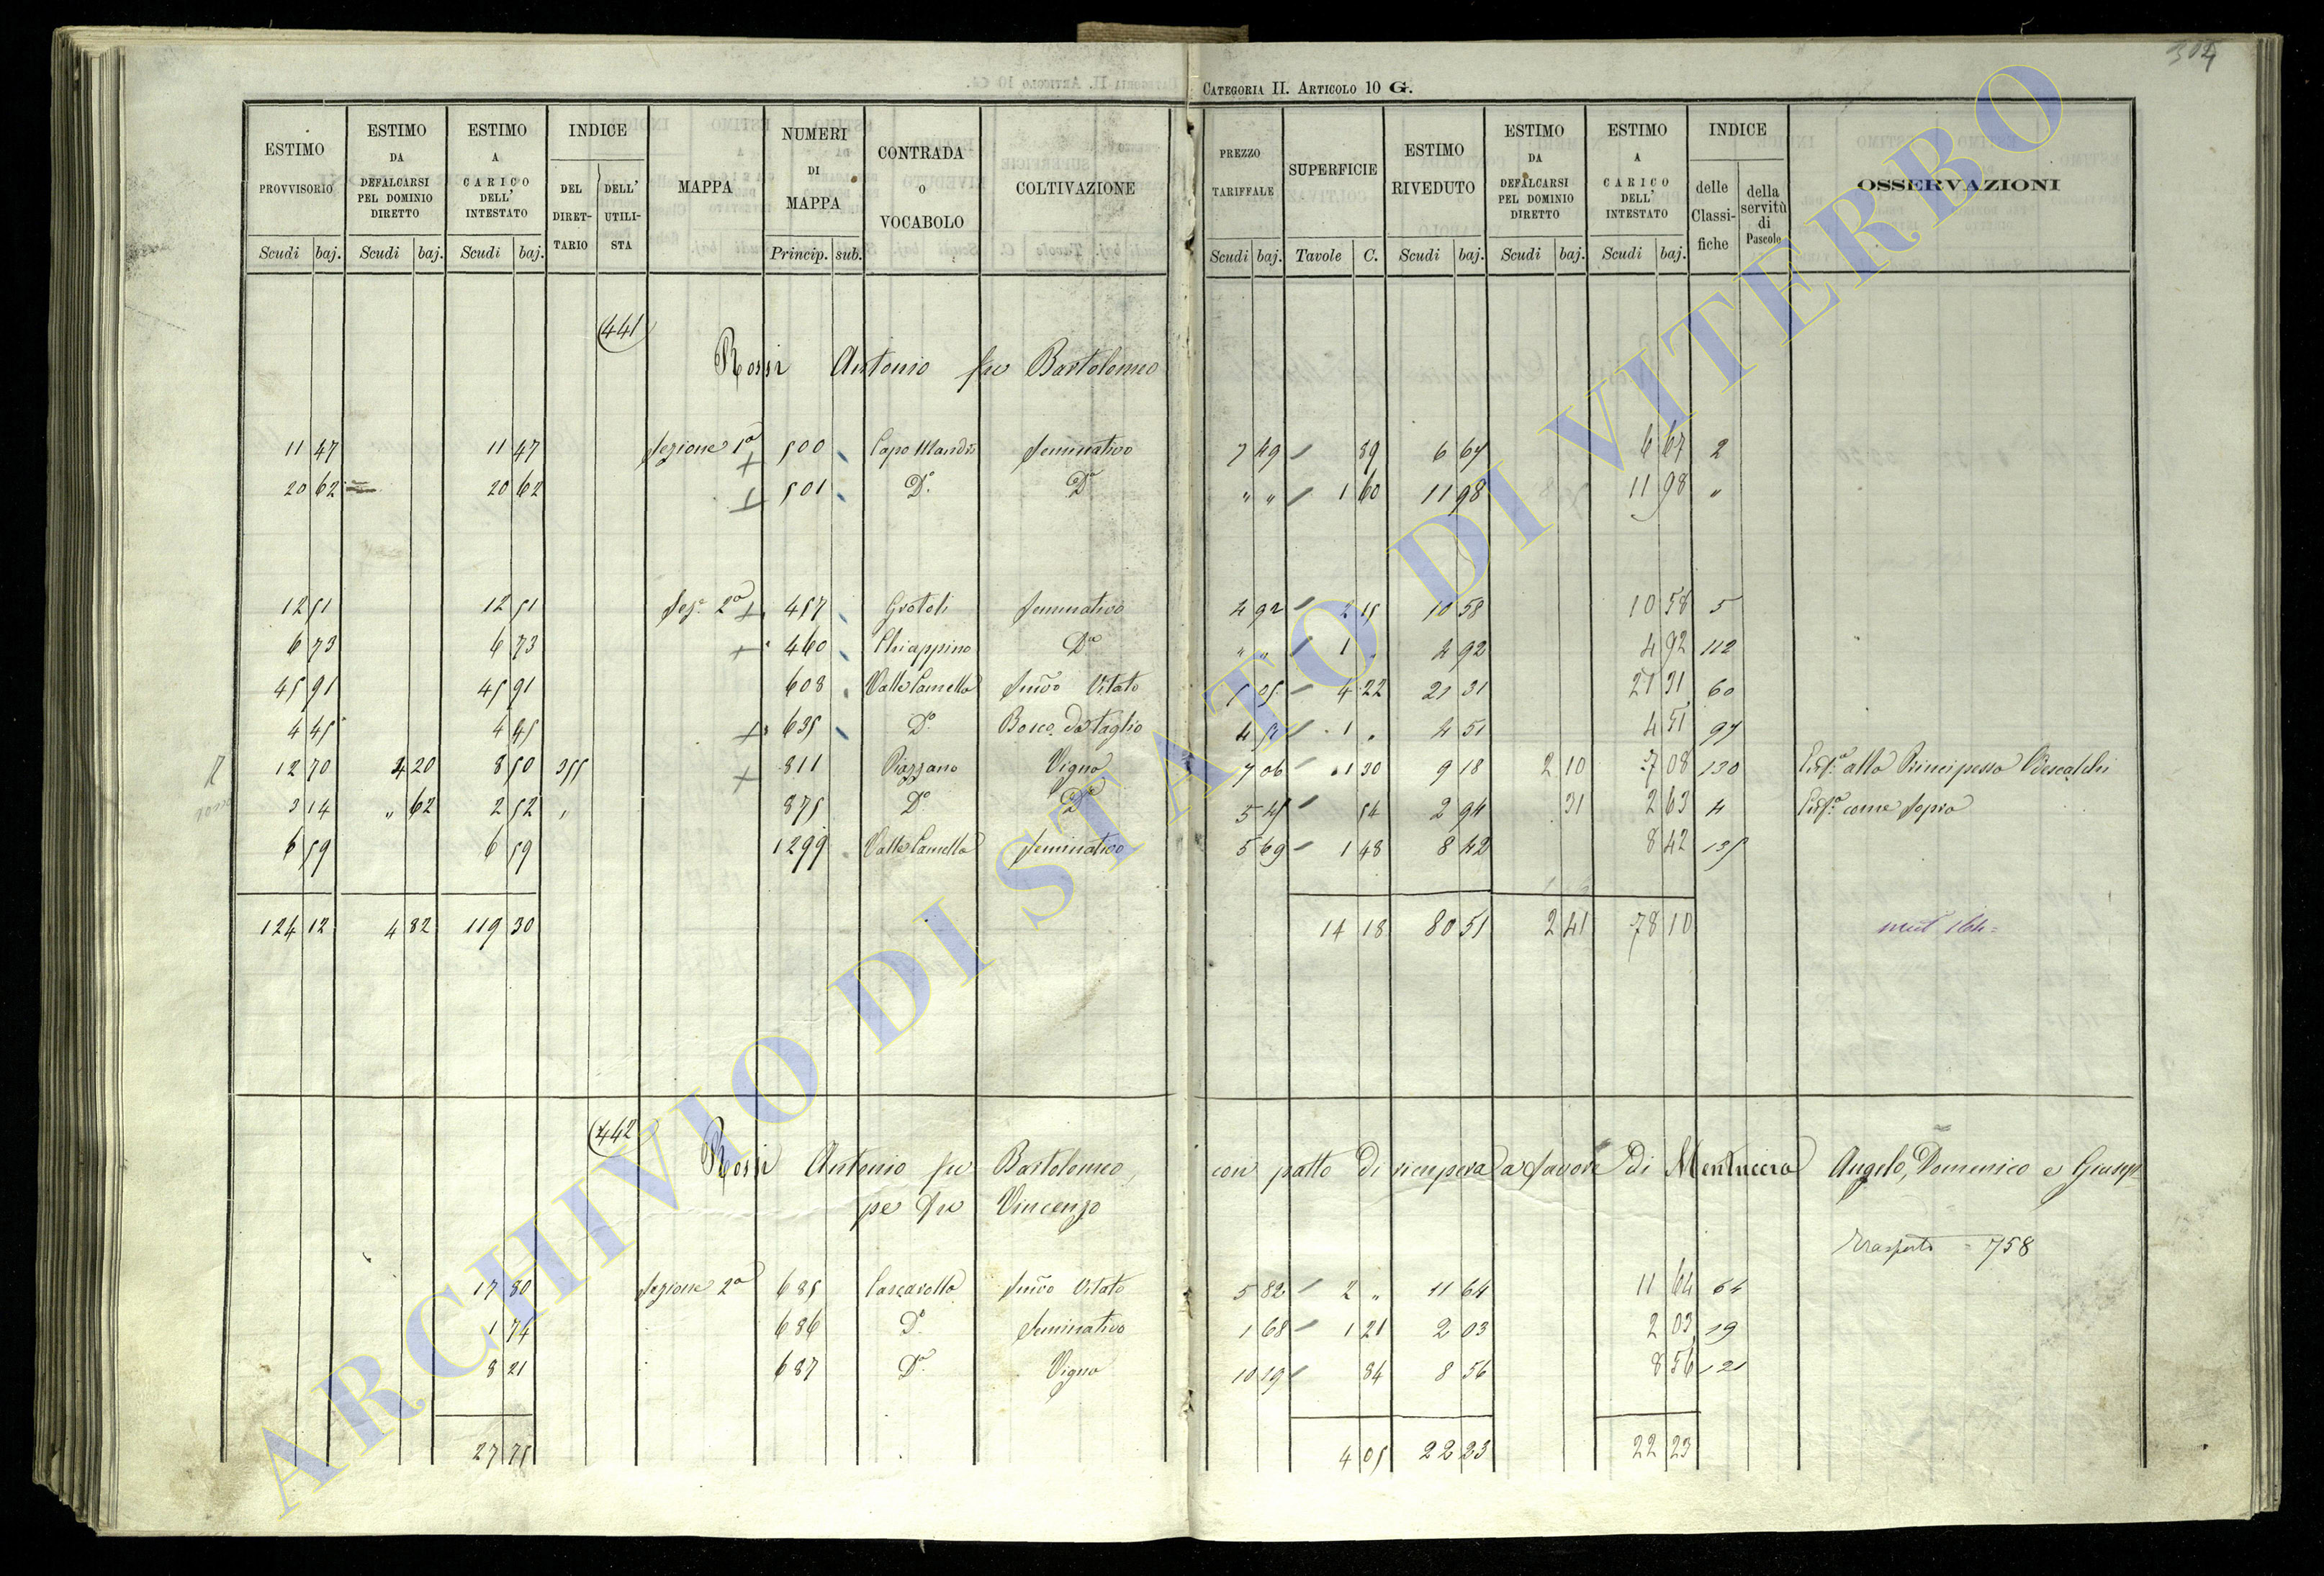 304
CATEGORIA II. ARTICOLO 10 G.
ESTIMO PROVVISORIO Scudi baj.
ESTIMO DA DEFALCARSI PEL DOMINIO DIRETTO Scudi baj.
ESTIMO A CARICO DELL' INTESTATO Scudi baj.
INDICE DEL DIRETTARIO DELL' UTILISTA
MAPPA
NUMERI DI MAPPA Princip. sub.
CONTRADA O VOCABOLO
COLTIVAZIONE
PREZZO TARIFFALE Scudi baj.
SUPERFICIE Tavole C.
ESTIMO RIVEDUTO Scudi baj.
ESTIMO DA DEFALCARSI PEL DOMINIO DIRETTO Scudi baj.
ESTIMO A CARICO DELL' INTESTATO Scudi baj.
INDICE delle Classifiche della servitù di Pascolo
OSSERVAZIONI
441
Rossi Antonio fu Bartolomeo
11 47 11 47 Sezione 1a 500 Seminativo 7 49 89 6 67 6 67 2
20 62 20 62 501 Do Do " " 1 60 11 98 11 98 "
12 51 12 51 Seze 2a 457 Grotoli Seminativo 4 92 2 15 10 58 10 58 5
6 73 6 73 460 Chiappino Do " " 1 " 4 92 4 92 112
45 91 45 91 608 Valle Camella Semvo Vitato 5 05 4 22 21 31 21 31 60
4 45 4 45 635 Do Bosco da taglio 4 51 1 " 4 51 4 51 97
12 70 4 20 8 50 355 811 Piazzano Vigna 7 06 1 30 9 18 2 10 7 08 130 alla Principessa Odescalchi
3 14 " 62 2 52 " 875 Do Do 5 45 54 2 94 31 2 63 4 come sopra
6 59 6 59 1299 Valle Camella Seminativo 5 69 1 48 8 42 8 42 135
124 12 4 82 119 30 14 18 80 51 2 41 78 10
442
Rossi Antonio fu Bartolomeo, con patto di ricupera a favore di Mentuccia Angelo, Domenico e Giusep
pe fu Vincenzo
Trasporto = 758
17 80 Sezione 2a 685 Cascarolla Semvo Vitato 5 82 2 " 11 64 11 64 64
1 74 686 Do Seminativo 1 68 1 21 2 03 2 03 19
8 21 687 Do Vigna 10 19 84 8 56 8 56 121
27 75 4 05 22 23 22 23
ARCHIVIO DI STATO DI VITERBO